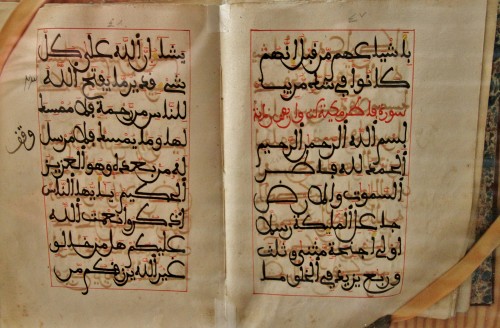 بأشيعهم من قبل إنهم
كانوا في شك مريب
سورة فاطر مكية
بسم الله الرحمن الرحيم
الحمد لله فاطر
السموت والارض
جاعل الملئكة رسلا
اولي اجنحة مثنى وثلث
وربع يزيد في الخلق ما
يشاء ان الله على كل
شيء قدير ما يفتح الله
للناس من رحمة فلا ممسك
لها وما يمسك فلا مرسل
له من بعده وهو العزيز
الحكيم يأيها الناس
اذكروا نعمت الله
عليكم هل من خلق
غير الله يرزقكم من
وقف